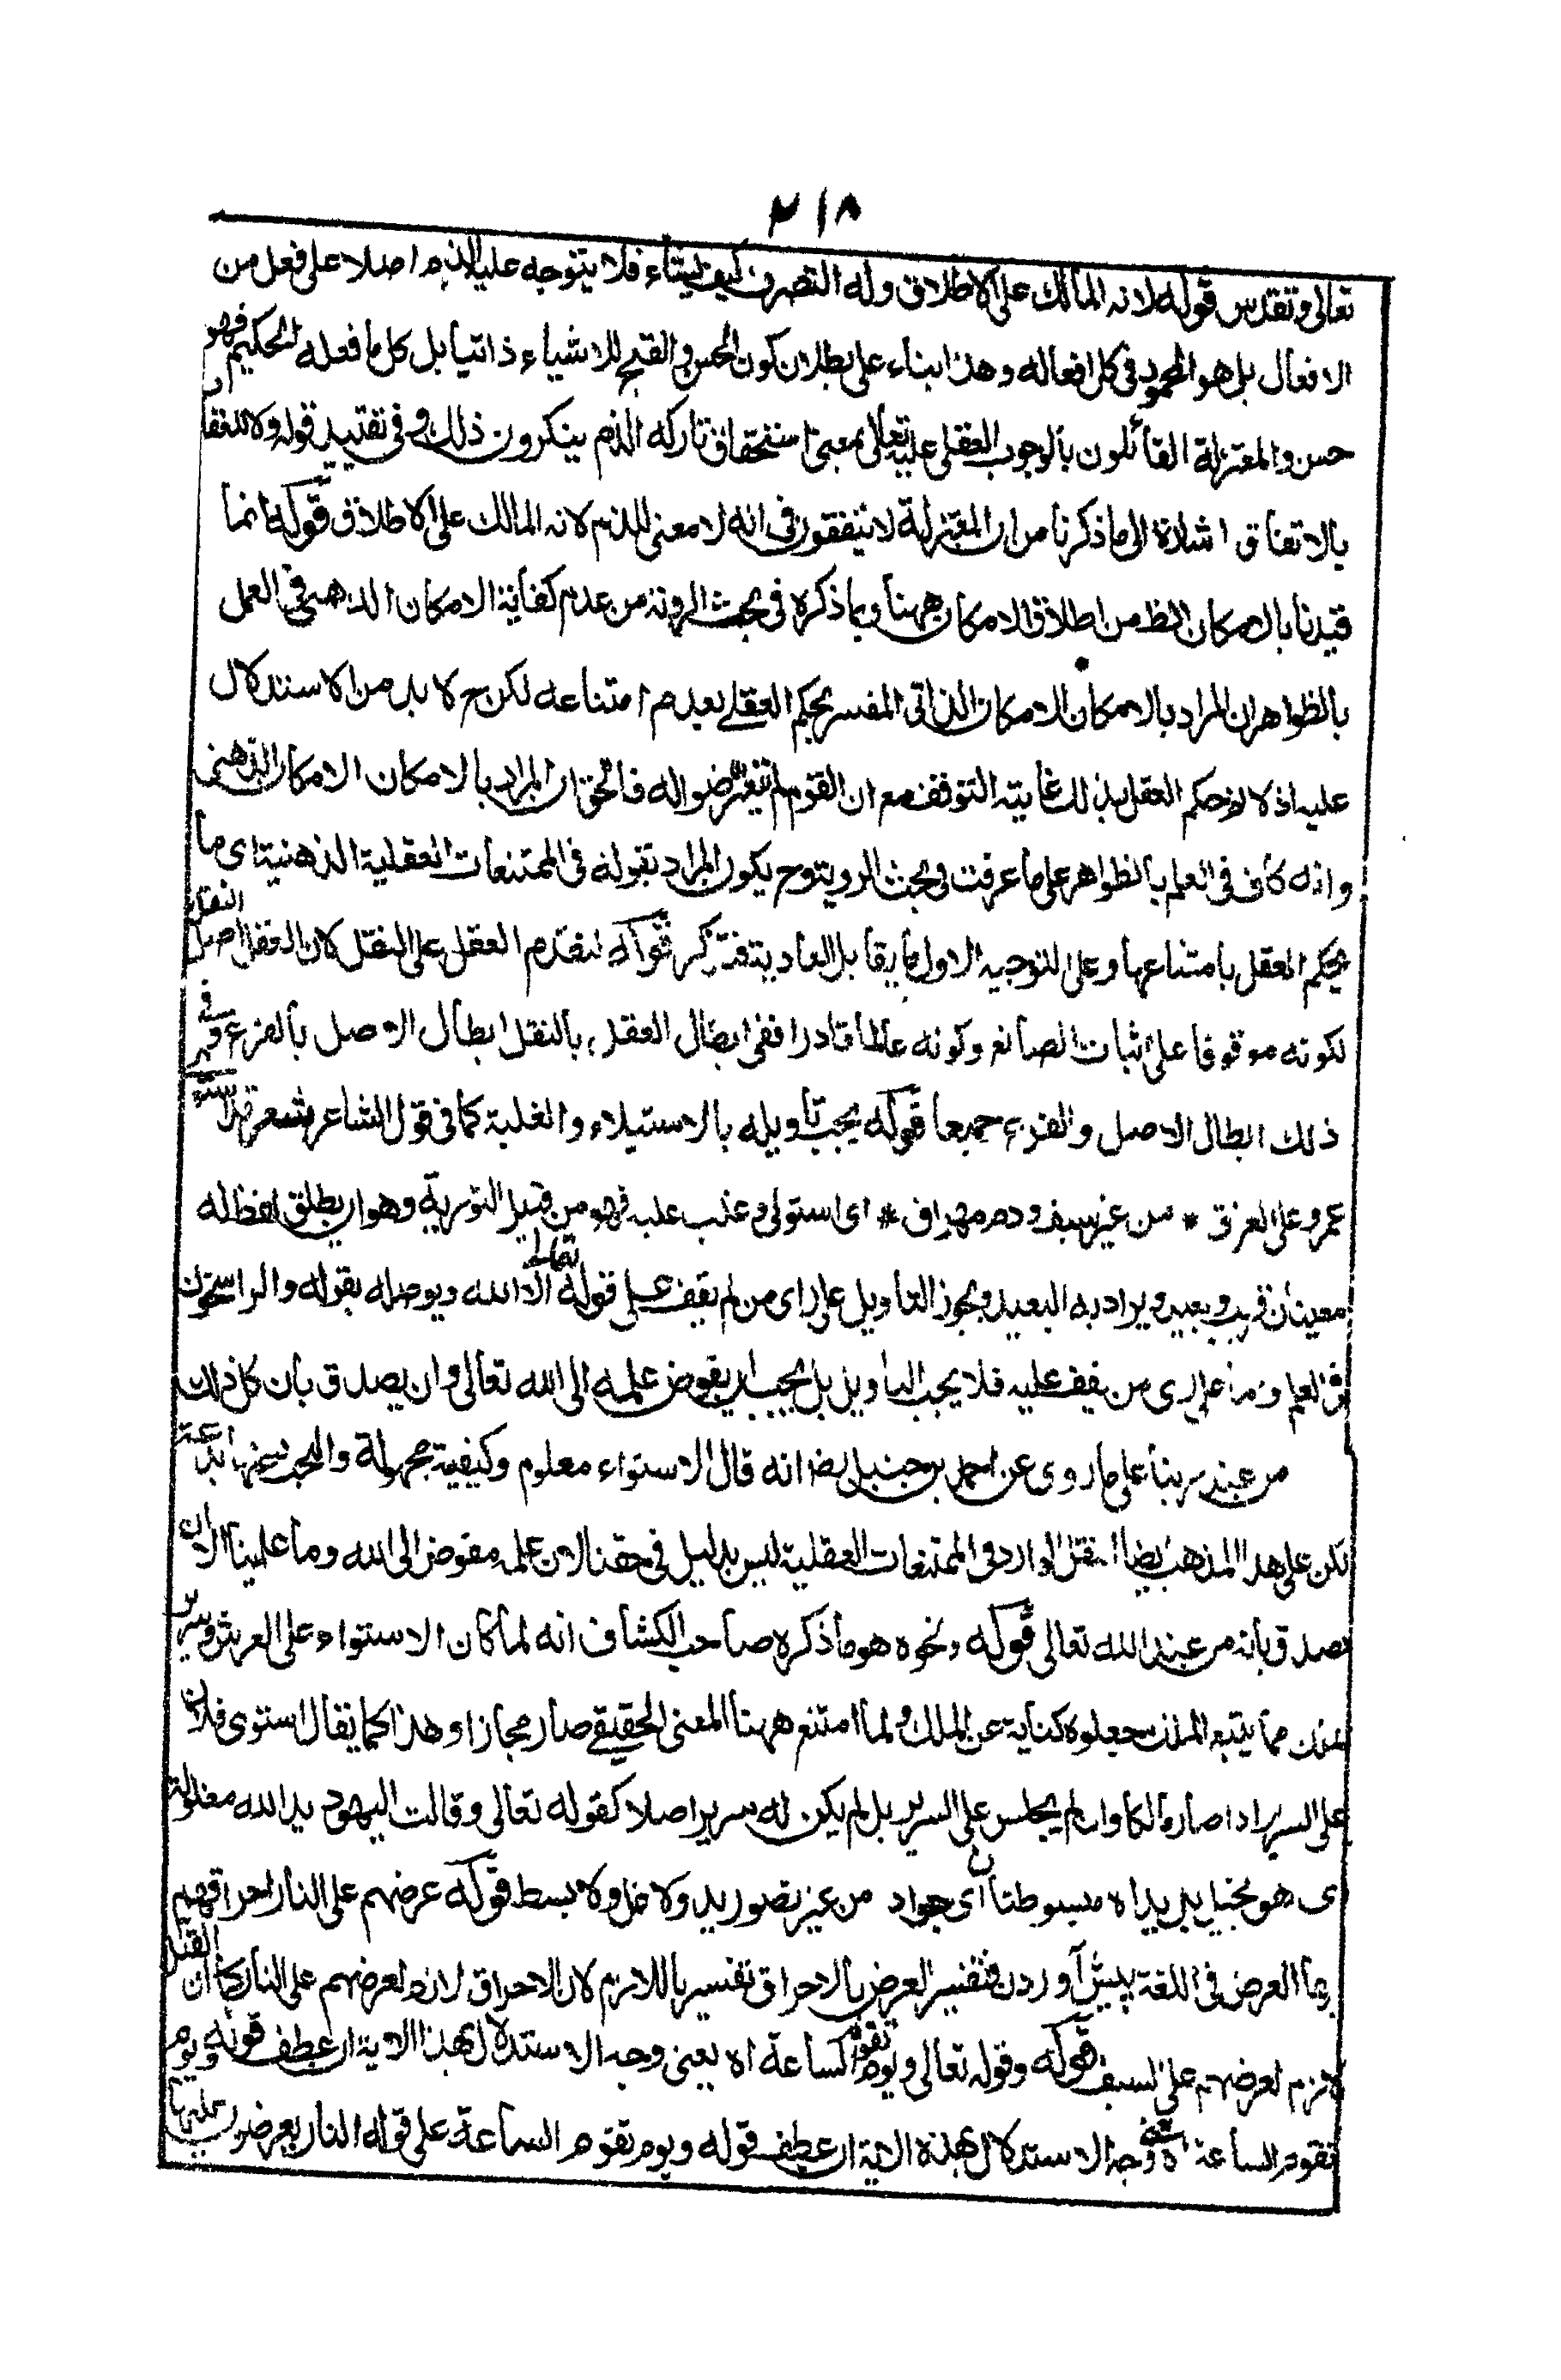 ٢١٨
تعالى وتقدس قوله لانه المالك على الاطلاق وله التصرف كيف يشاء فلا يتوجه عليه الذم اصلا على فعل من
الافعال بل هو المحمود في كل افعاله وهذا بناء على بطلان كون الحسن والقبح للاشياء ذاتيا بل كل ما فعله الحكيم فهو
حسن والمعتزلة القائلون بالوجوب العقلى عليه تعالى بمعنى استحقاق تاركه الذم ينكرون ذلك وفى تقييد قوله ولا
بالاتفاق اشارة الى ما ذكرنا من ان المعتزلة لا يتفقون فى انه لا معنى للذم لانه المالك على الاطلاق قوله انما
قيدنا بالامكان الظ من اطلاق الامكان ههنا وبما ذكره فى بحث الروية من عدم كفاية الامكان الذهنى فى العمل
بالظواهر ان المراد بالامكان الامكان الذاتى المفسر بحكم العقل بعدم امتناعه لكن ح لا بد من الاستدلال
عليه اذ لا حكم العقل بذلك غايته التوقف مع ان القوم لم يتعرضوا له فالحق ان المراد بالامكان الامكان الذهنى
وانه كاف فى العلم بالظواهر على ما عرفت فى بحث الروية وح يكون المراد بقوله فى الممتنعات العقلية الذهنية اى ما
يحكم العقل بامتناعها وعلى التوجيه الاول ما يقابل العادية فتذكر قوله لتقدم العقل على النقل لان العقل اصل النقل
لكونه موقوفا على اثبات الصانع وكونه عالما قادرا ففى ابطال العقل بالنقل ابطال الاصل بالفرع وفى
ذلك ابطال الاصل والفرع جميعا قوله يجب تاويله بالاستيلاء والغلبة كما فى قول الشاعر شعر قد استوى
عمرو على العراق * من غير سيف ودم مهراق * اى استولى وغلب عليه فهو من قبيل التورية وهو ان يطلق لفظ له
معنيان قريب وبعيد ويراد به البعيد ويجوز التاويل على راى من لم يقف على قوله تعالى الا الله ويوصله بقوله والراسخون
فى العلم واما على راى من يقف عليه فلا يجب التاويل بل يجب ان يفوض علمه الى الله تعالى وان يصدق بان كل ذلك
من عند ربنا على ما روى عن احمد بن حنبل رض انه قال الاستواء معلوم وكيفية مجهولة والبحث عنها بدعة
لكن على هذا المذهب ايضا النقل الوارد فى الممتنعات العقلية ليس بدليل فى حقنا لان علمه مفوض الى الله وما علينا الا ان
نصدق بانه من عند الله تعالى قوله ونحوه هو ما ذكره صاحب الكشاف انه لما كان الاستواء على العرش وسرير
الملك مما يتبع الملك جعلوه كناية عن الملك ولما امتنع ههنا المعنى الحقيقى صار مجازا وهذا كما يقال استوى فلان
على السرير اذا صار مالكا وان لم يجلس على السرير بل لم يكن له سرير اصلا كقوله تعالى وقالت اليهود يد الله مغلولة
اى هو بخيل بل يداه مبسوطتان اى جواد من غير تصور يد ولا غل ولا بسط قوله عرضهم على النار احراقهم
بها العرض فى اللغة پيش آوردن فتفسير العرض بالاحراق تفسير باللازم لان الاحراق لازم لعرضهم على النار كما ان القتل
لازم لعرضهم على السيف قوله وقوله تعالى ويوم تقوم الساعة اه يعنى وجه الاستدلال بهذا الاية ان عطف قوله ويوم
تقوم الساعة اه وجه الاستدلال بهذه الاية ان عطف قوله ويوم تقوم الساعة على قوله النار يعرضون عليها